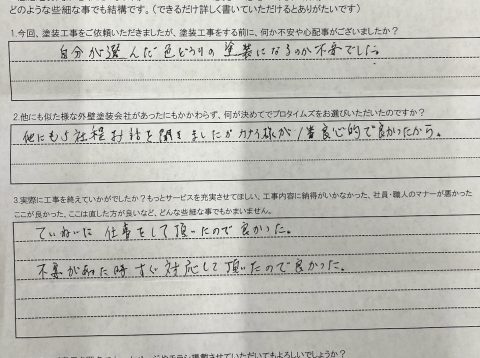 どのような些細な事でも結構です。（できるだけ詳しく書いていただけるとありがたいです）
1.今回、塗装工事をご依頼いただきましたが、塗装工事をする前に、何か不安や心配事がございましたか？
自分が選んだ色どうりの塗装になるのか不安でした。
2.他にも似た様な外壁塗装会社があったにもかかわらず、何が決めてでプロタイムズをお選びいただいたのですか？
他にも5社程お話を聞きましたがカナイ様が1番良心的で良かったから。
3.実際に工事を終えていかがでしたか？もっとサービスを充実させてほしい、工事内容に納得がいかなかった、社員・職人のマナーが悪かった
ここが良かった、ここは直した方が良いなど、どんな些細な事でもかまいません。
ていねいに仕事をして頂いたので良かった。
不具があった時すぐ対応して頂いたので良かった。
掲載させていただいてもよろしいでしょうか？